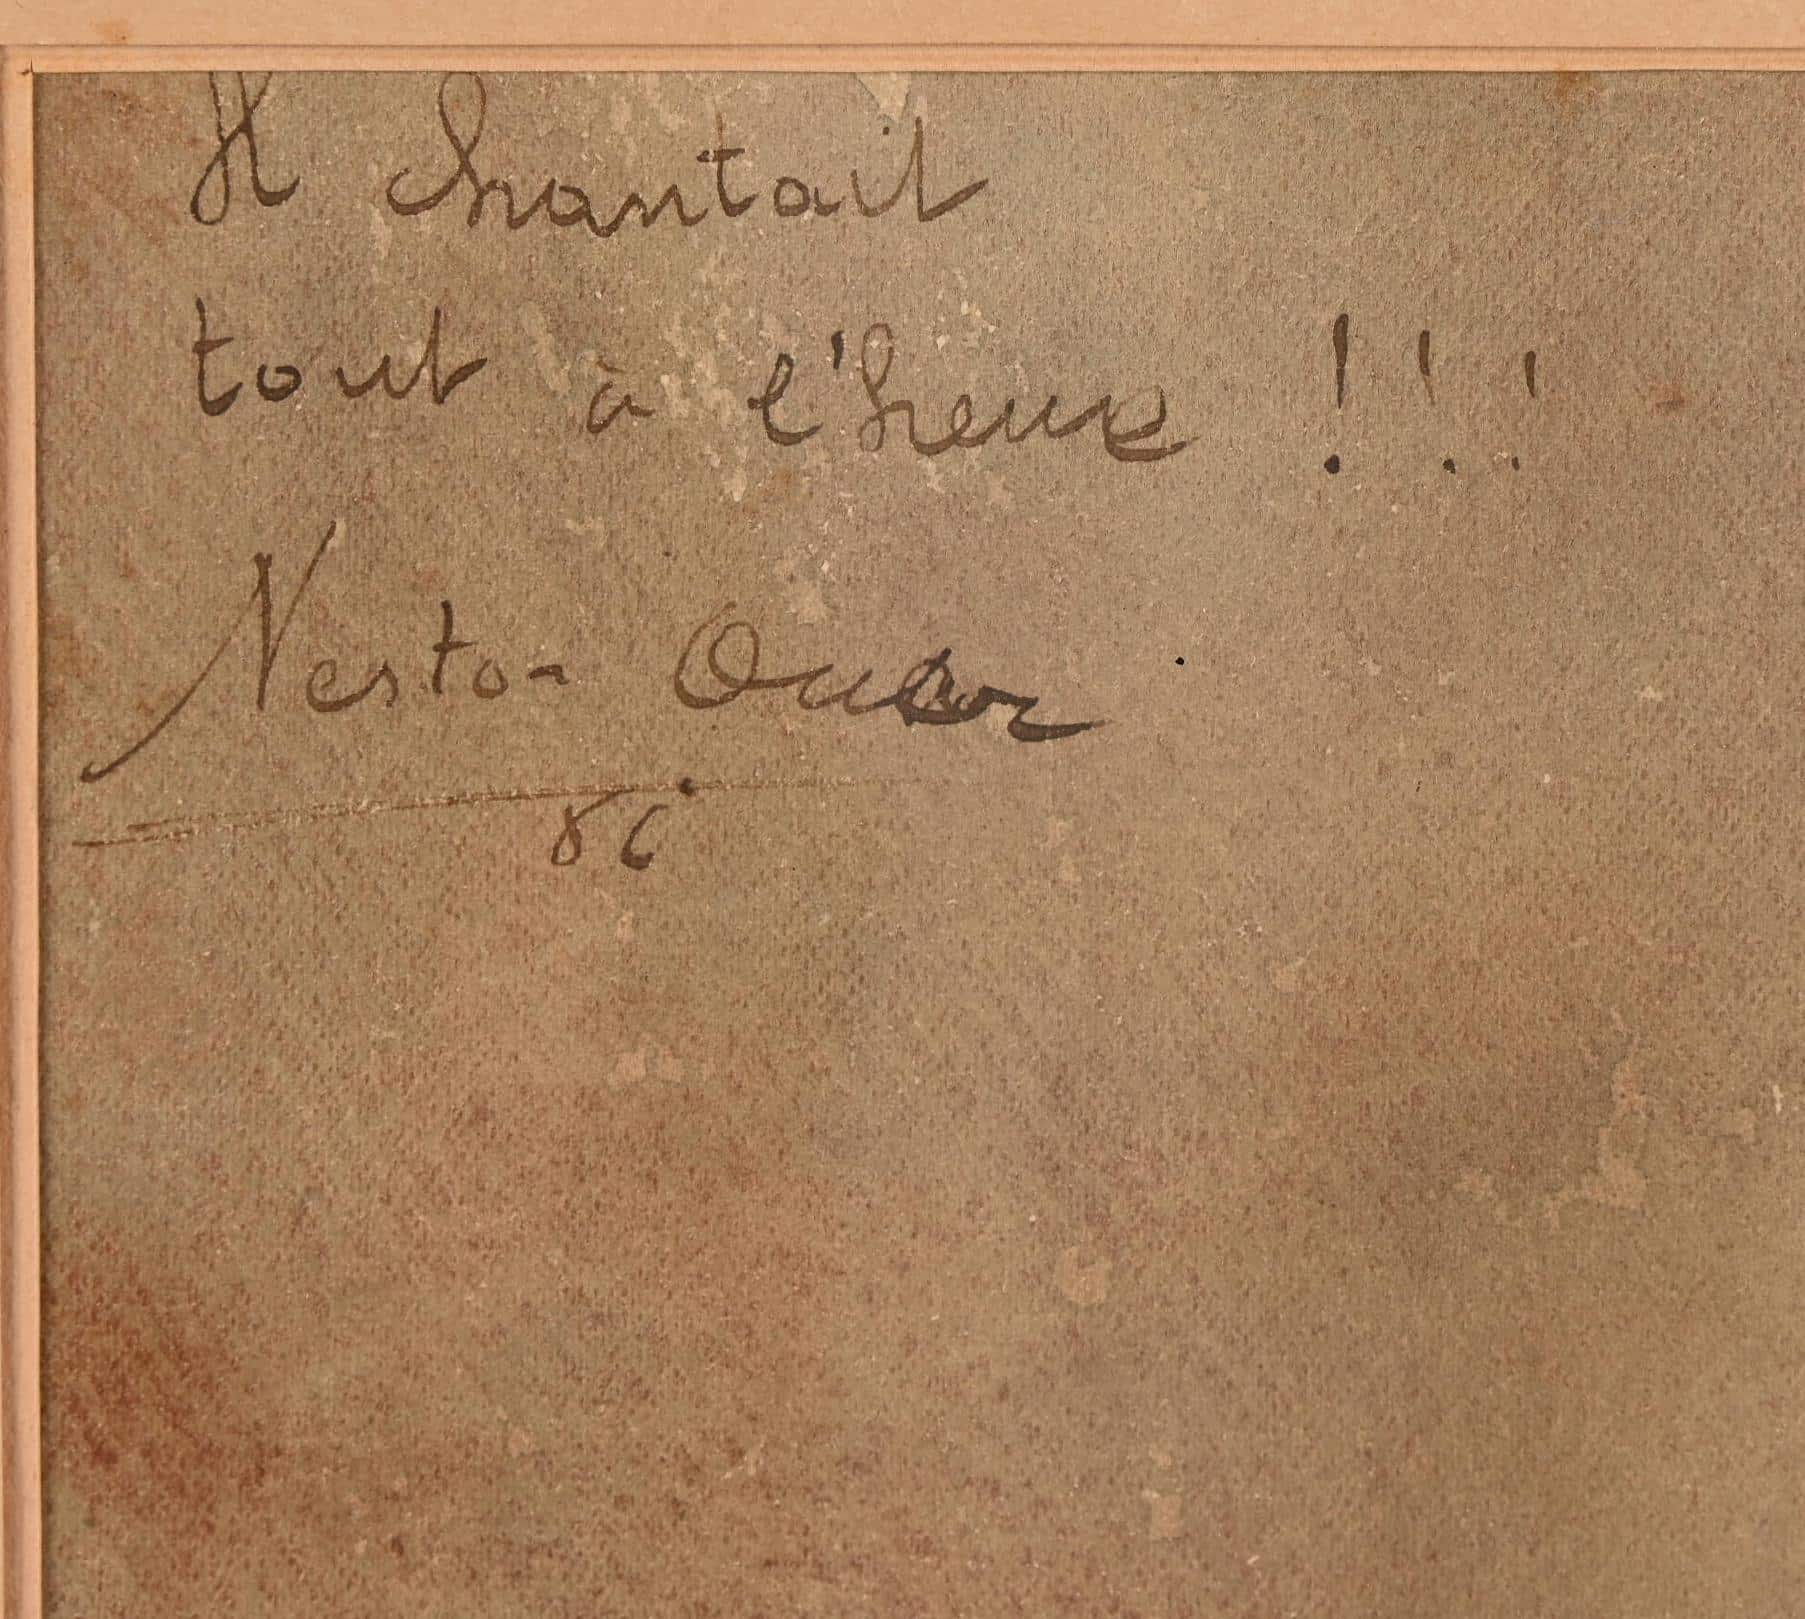 Il chantait
tout à l'heure !!!
Nestor
86